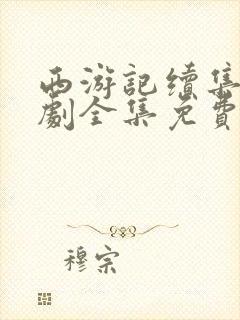 西游記續集
劇全集免費
穆宗